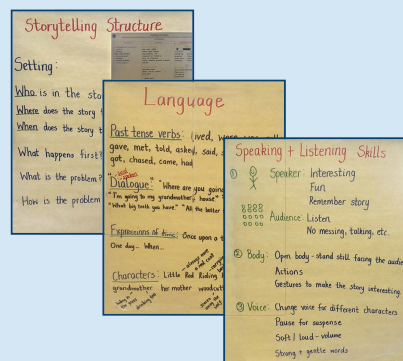 Storytelling Structure
Setting:
Who is in the sto
Where does the story
When does the story t
What happens first?
What is the problem?
How is the problem
Language
Past tense verbs: lived,
gave, met, told, asked, said,
got, chased, came, had
Dialogue: "Where are you going
"I'm going to my grandmother's house"
"What big teeth you have" "All the better
Expressions of time: Once upon a
One day... When...
Characters: Little Red Riding
grandmother her mother woodcutt
Speaking + Listening Skills
① Speaker: Interesting
Fun
Remember story
Audience: Listen
No messing, talking, etc.
② Body: Open body - stand still facing the audie
Actions
Gestures to make the story interesting
③ Voice: Change voice for different characters
Pause for suspense
Soft / loud - volume
Strong + gentle words